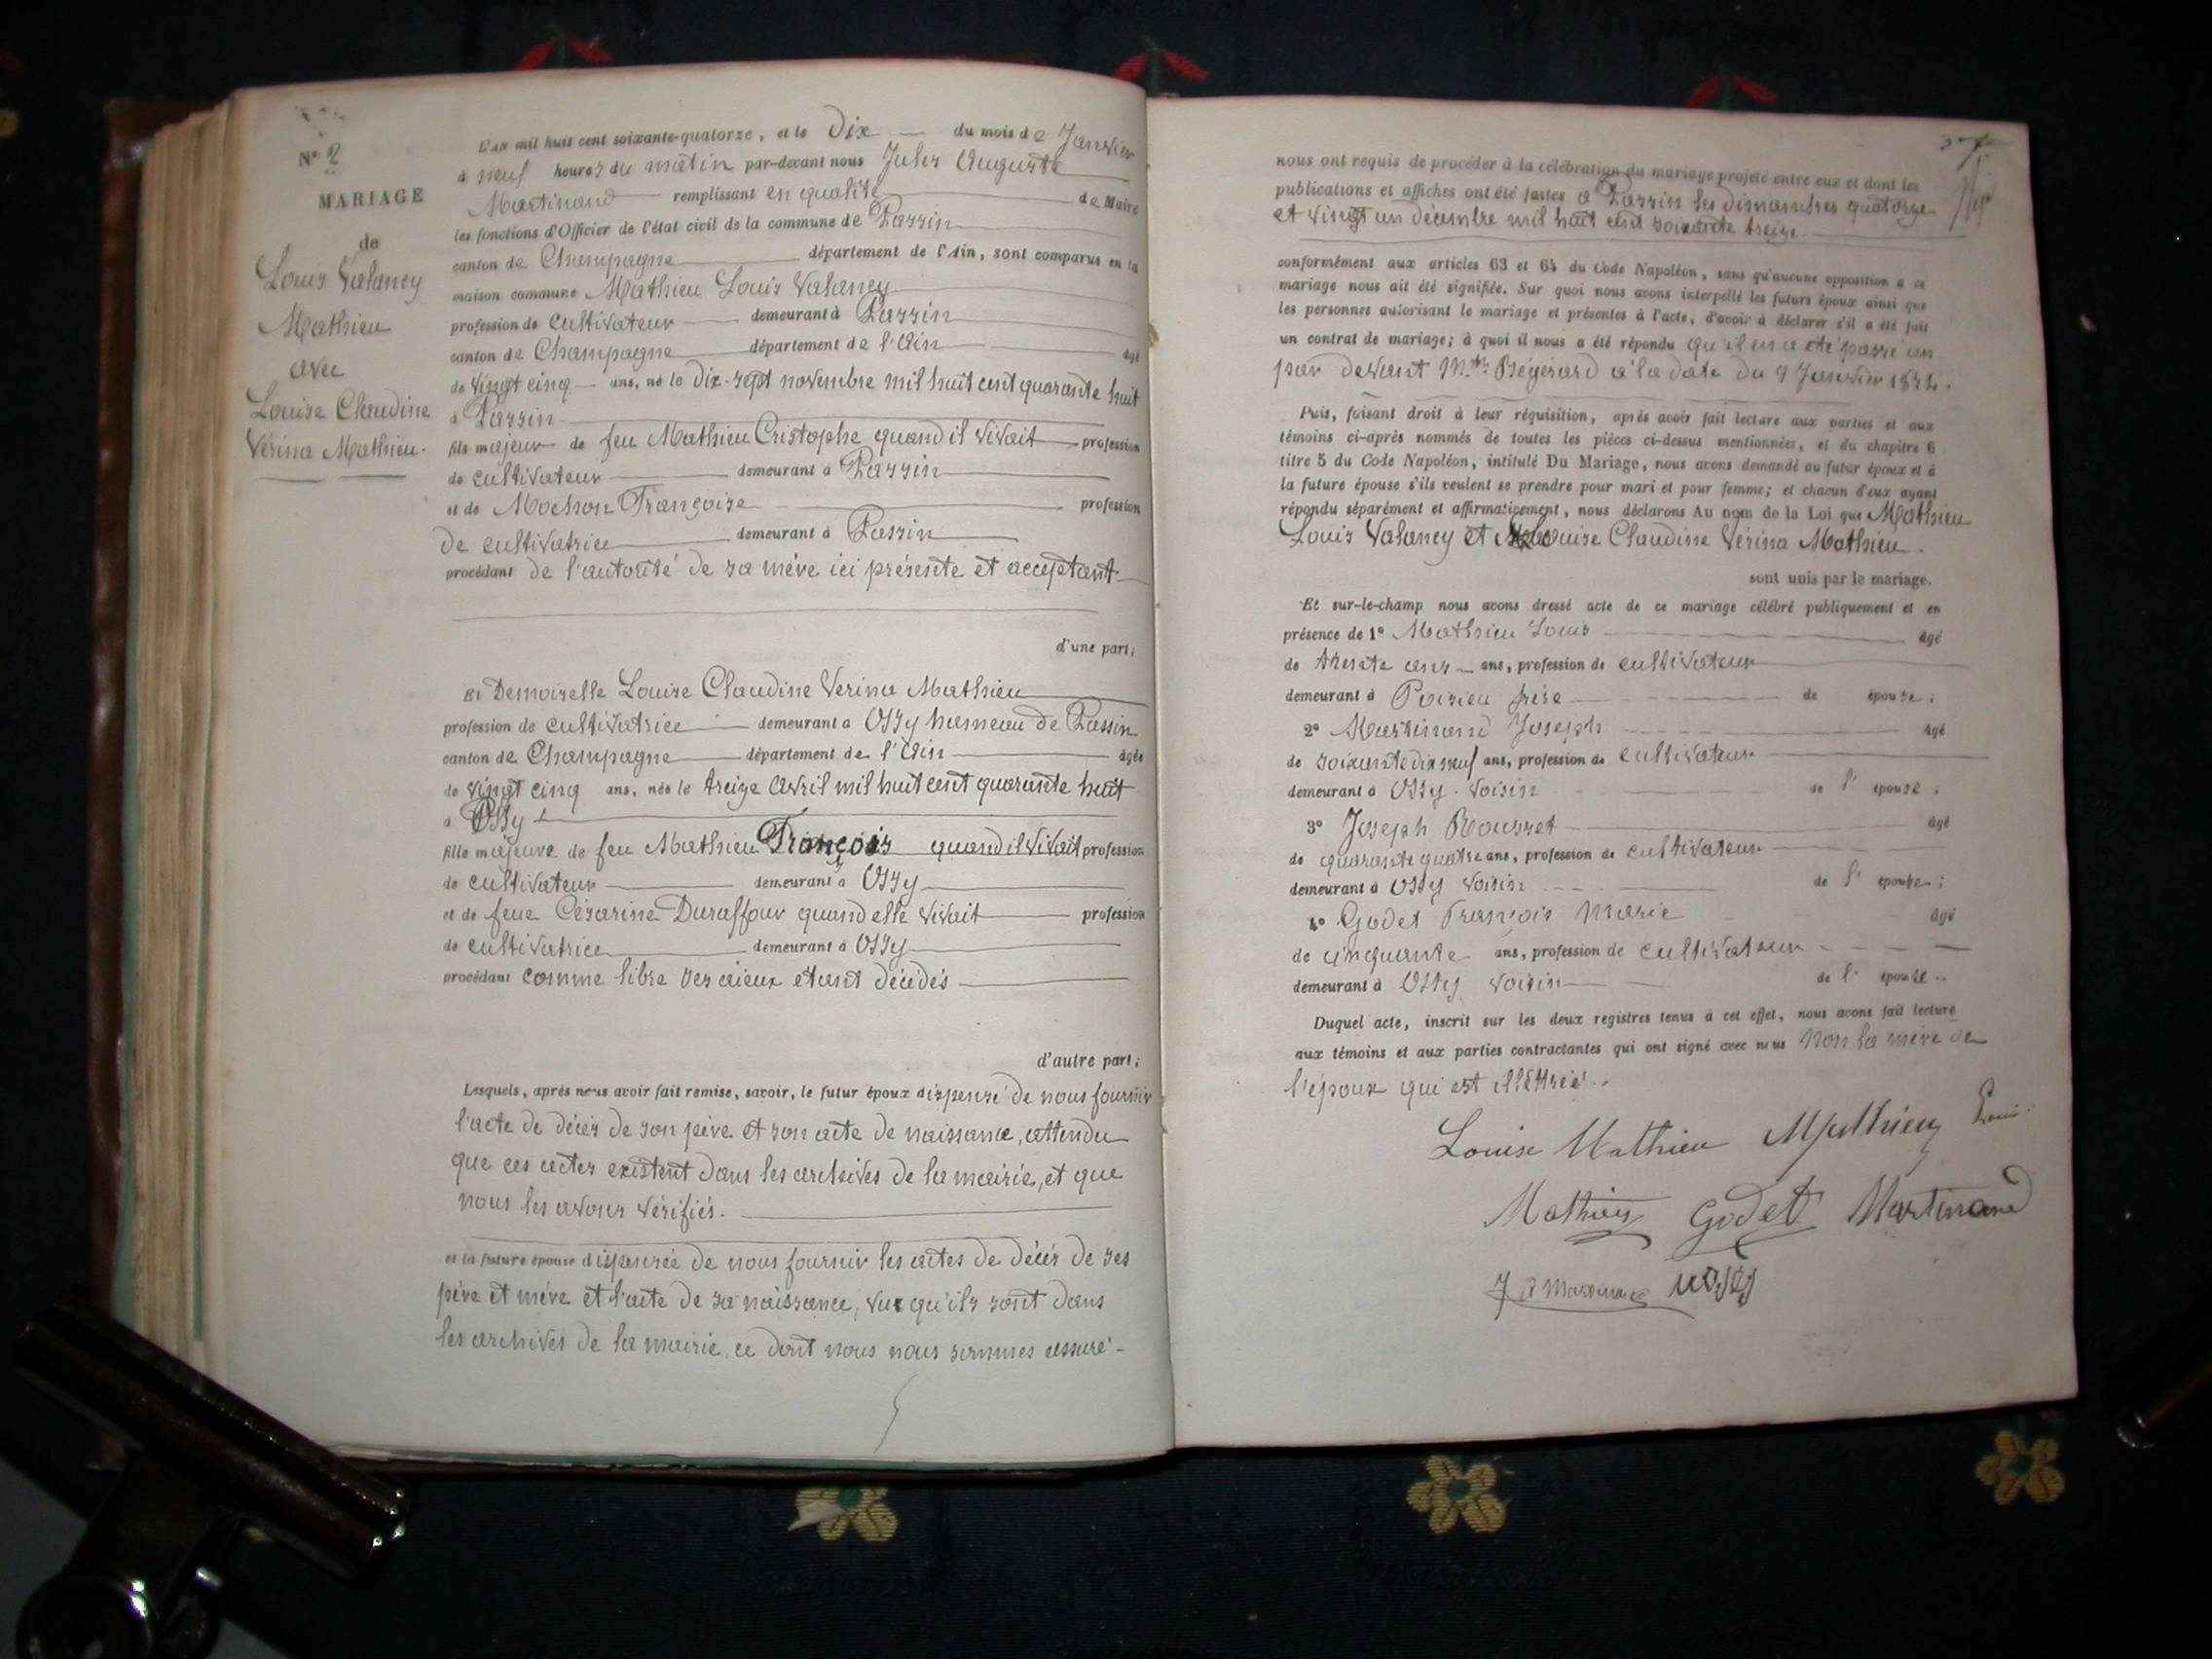 N° 2
MARIAGE
de
Louis Valancy
Mathieu
avec
Louise Claudine
Vérina Mathieu.
L'an mil huit cent soixante-quatorze, et le Dix du mois de Janvier
à neuf heures du matin par-devant nous Jules Auguste
Martinand remplissant en qualité de Maire
les fonctions d'Officier de l'état civil de la commune de Passin
canton de Champagne département de l'Ain, sont comparus en la
maison commune Mathieu Louis Valancy
profession de cultivateur demeurant à Passin
canton de Champagne département de l'Ain âgé
de vingt cinq ans, né le dix-sept novembre mil huit cent quarante huit
à Passin
fils majeur de feu Mathieu Cristophe quand il vivait profession
de cultivateur demeurant à Passin
et de Mochon Françoise profession
de cultivatrice demeurant à Passin
procédant de l'autorité de sa mère ici présente et acceptant
d'une part;
Et Demoiselle Louise Claudine Verina Mathieu
profession de cultivatrice demeurant à Ossy hameau de Passin
canton de Champagne département de l'Ain âgée
de vingt cinq ans, née le treize avril mil huit cent quarante huit
à Ossy
fille majeure de feu Mathieu François quand il vivait profession
de cultivateur demeurant à Ossy
et de feue Césarine Duraffour quand elle vivait profession
de cultivatrice demeurant à Ossy
procédant comme libre ses aieux etant décédés
d'autre part;
Lesquels, après nous avoir fait remise, savoir, le futur époux dispensé de nous fournir
l'acte de décès de son père et son acte de naissance, attendu
que ces actes existent dans les archives de la mairie, et que
nous les avons vérifiés.
et la future épouse dispensée de nous fournir les actes de décès de ses
père et mère et l'acte de sa naissance, vu qu'ils sont dans
les archives de la mairie, ce dont nous nous sommes assuré
nous ont requis de procéder à la célébration du mariage projeté entre eux et dont les
publications et affiches ont été faites à Passin les dimanches quatorze
et vingt un décembre mil huit cent soixante treize.
conformément aux articles 63 et 64 du Code Napoléon, sans qu'aucune opposition a ce
mariage nous ait été signifiée. Sur quoi nous avons interpellé les futurs époux ainsi que
les personnes autorisant le mariage et présentes à l'acte, d'avoir à déclarer s'il a été fait
un contrat de mariage; à quoi il nous a été répondu qu'il en a été passé un
par devant Mtre Bégérard à la date du 9 Janvier 1874.
Puis, faisant droit à leur réquisition, après avoir fait lecture aux parties et aux
témoins ci-après nommés de toutes les pièces ci-dessus mentionnées, et du chapitre 6
titre 5 du Code Napoléon, intitulé Du Mariage, nous avons demandé au futur époux et à
la future épouse s'ils veulent se prendre pour mari et pour femme; et chacun d'eux ayant
répondu séparément et affirmativement, nous déclarons Au nom de la Loi que Mathieu
Louis Valancy et Louise Claudine Vérina Mathieu.
sont unis par le mariage.
Et sur-le-champ nous avons dressé acte de ce mariage célébré publiquement et en
présence de 1° Mathieu Louis âgé
de trente ans ans, profession de cultivateur
demeurant à Poisieu frère de épouse;
2° Martinand Joseph âgé
de soixante dix neuf ans, profession de cultivateur
demeurant à Ossy voisin de l'épouse;
3° Joseph Rousset âgé
de quarante quatre ans, profession de cultivateur
demeurant à Ossy voisin de l'épouse;
4° Godet François Marie âgé
de cinquante ans, profession de cultivateur
demeurant à Ossy voisin de l'épouse.
Duquel acte, inscrit sur les deux registres tenus à cet effet, nous avons fait lecture
aux témoins et aux parties contractantes qui ont signé avec nous non la mère de
l'époux qui est illettrée.
Louise Mathieu Mathieu Louis
Mathieu Godet Martinand
J A Martinand